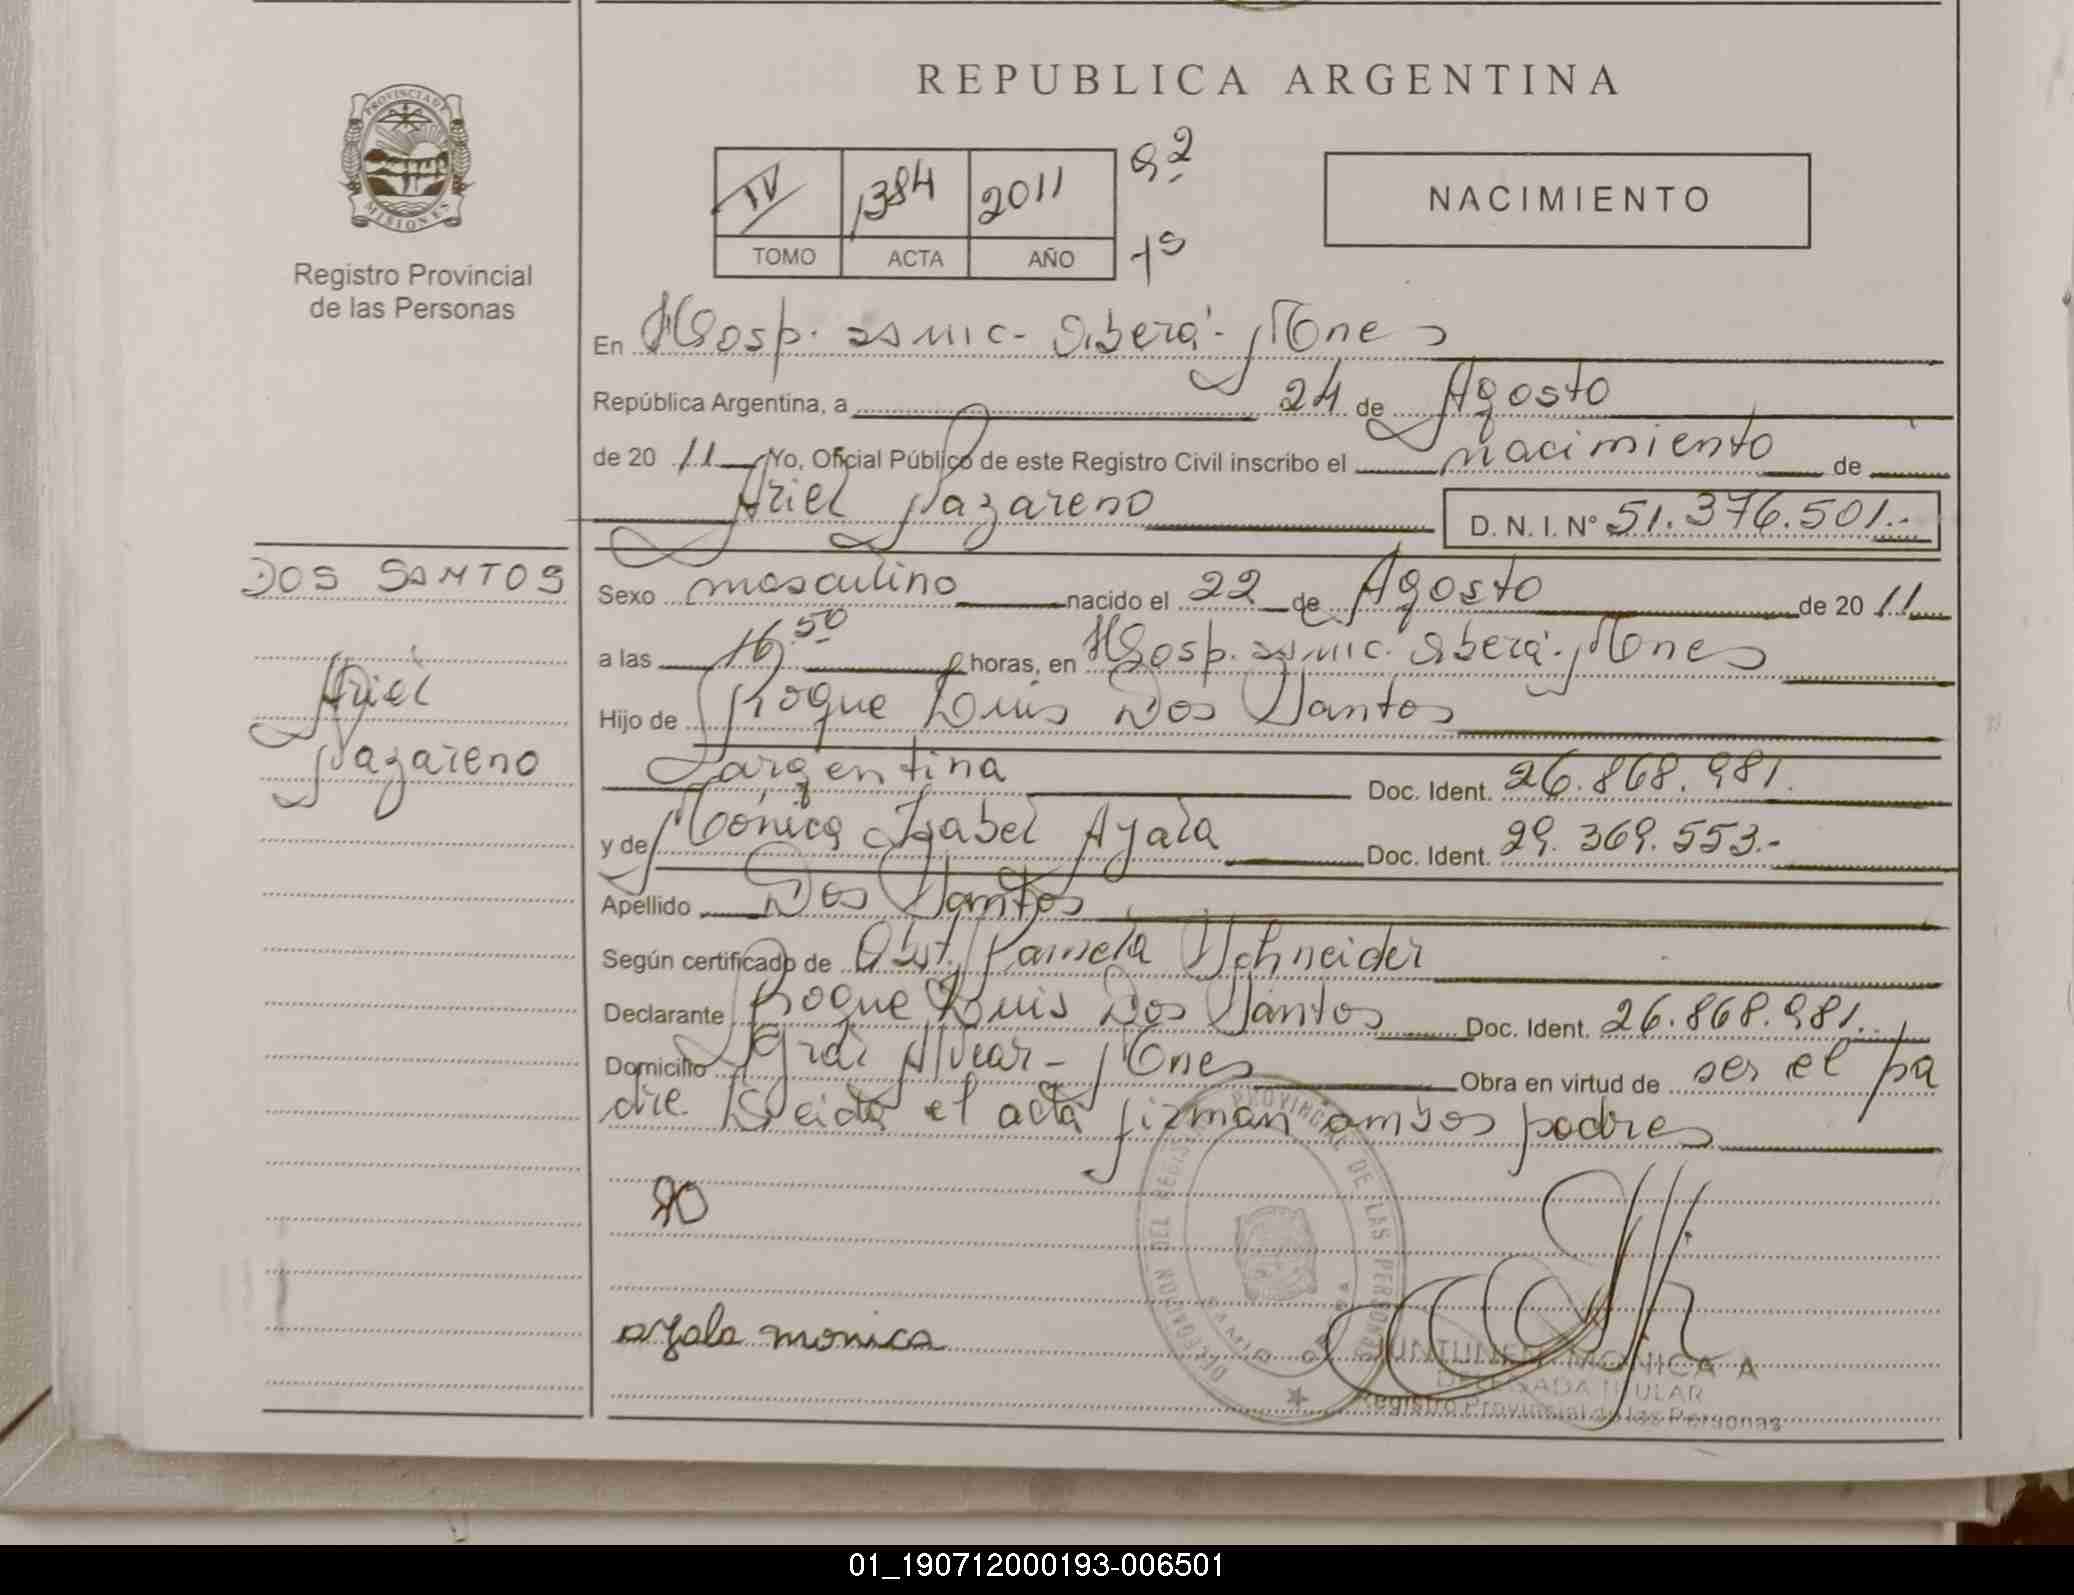 REPUBLICA ARGENTINA
PROVINCIA DE
MISIONES
Registro Provincial
de las Personas
IV 1384 2011
TOMO ACTA AÑO
NACIMIENTO
En Hosp. Samic. Oberá - Mnes
República Argentina, a 24 de Agosto
de 20 11 Yo, Oficial Público de este Registro Civil inscribo el nacimiento de
Ariel Nazareno D. N. I. Nº 51.376.501.-
DOS SANTOS
Ariel
Nazareno
Sexo masculino nacido el 22 de Agosto de 20 11
a las 16,50 horas, en Hosp. Samic. Oberá - Mnes
Hijo de Roque Luis Dos Santos
argentina Doc. Ident. 26.868.981.
y de Mónica Isabel Ayala Doc. Ident. 29.369.553.-
Apellido Dos Santos
Según certificado de Obst. Pamela Schneider
Declarante Roque Luis Dos Santos Doc. Ident. 26.868.981.
Domicilio Gral Alvear - Mnes Obra en virtud de ser el pa
dre. Leida el acta firman ambos padres
ayala monica
DELEGACION DEL REGISTRO PROVINCIAL DE LAS PERSONAS
MONICA A
DELEGADA TITULAR
Registro Provincial de las Personas
01_190712000193-006501